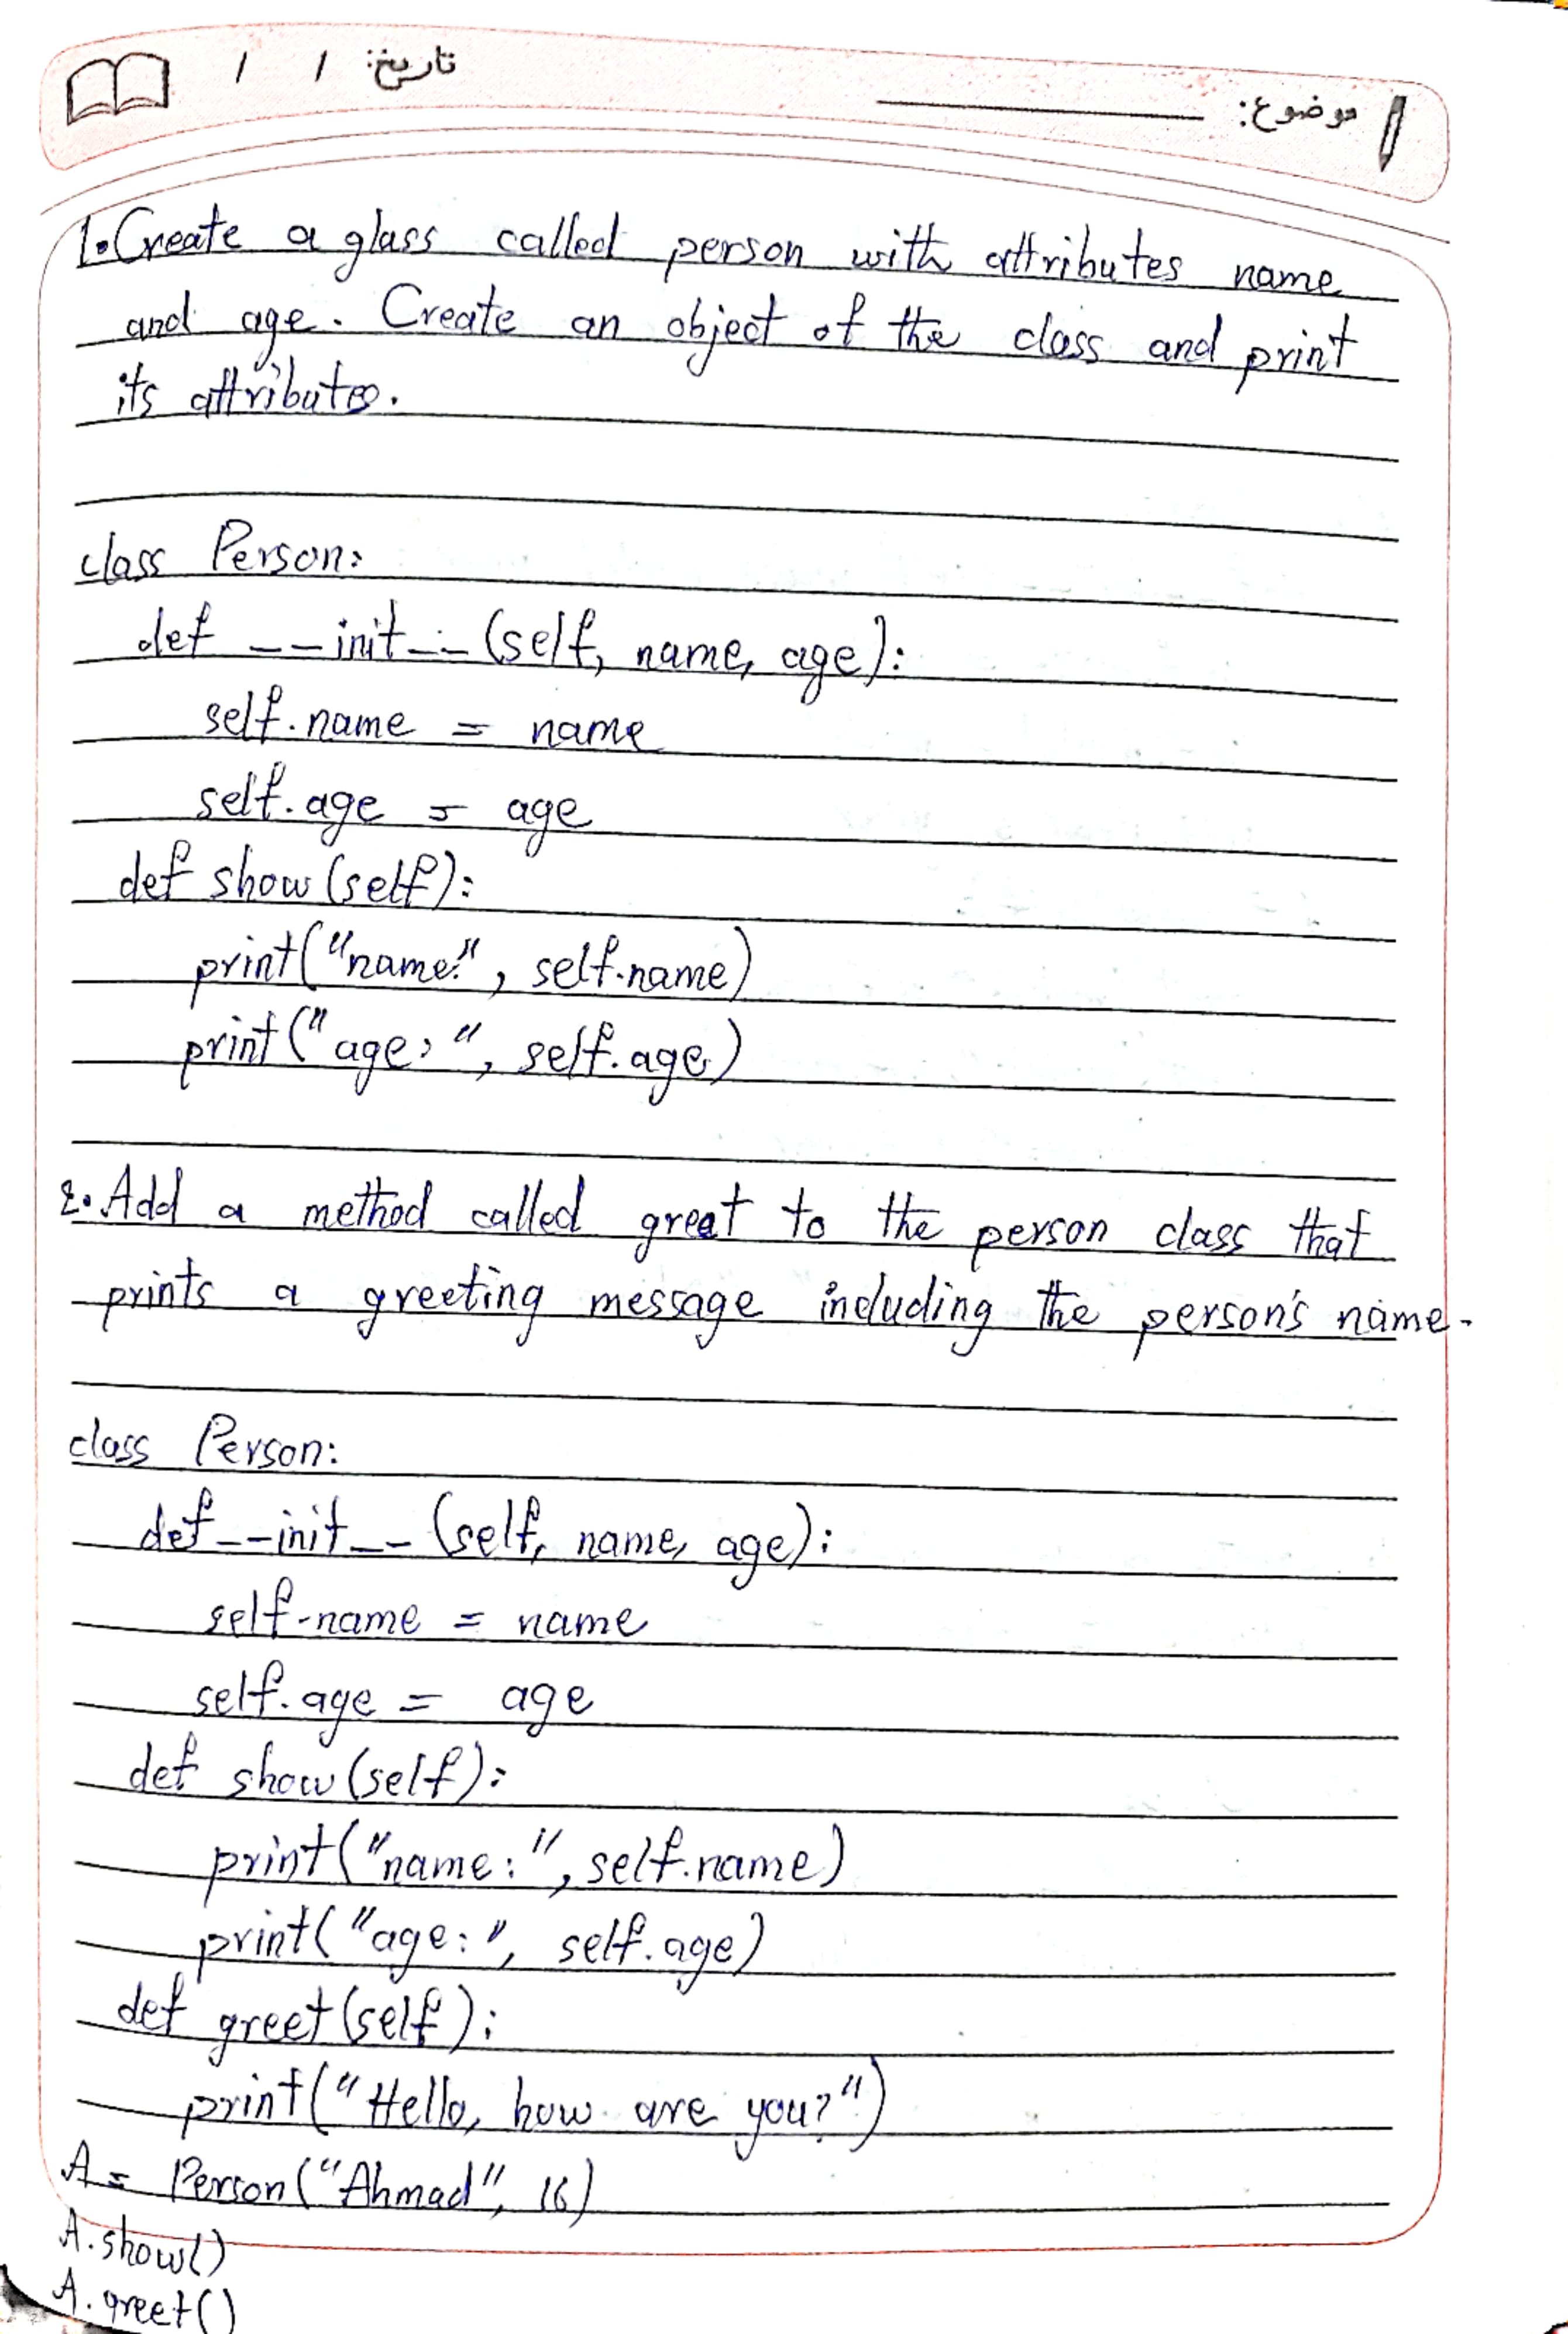 تاریخ: / /
موضوع:
1. Create a glass called person with attributes name
and age. Create an object of the class and print
its attributes.
class Person:
def __init__ (self, name, age):
self.name = name
self.age = age
def show (self):
print("name:", self.name)
print("age:", self.age)
2. Add a method called great to the person class that
prints a greeting message including the person's name.
class Person:
def __init__ (self, name, age):
self.name = name
self.age = age
def show (self):
print("name:", self.name)
print("age:", self.age)
def greet (self):
print("Hello, how are you?")
A = Person("Ahmad", 16)
A.show()
A.greet()